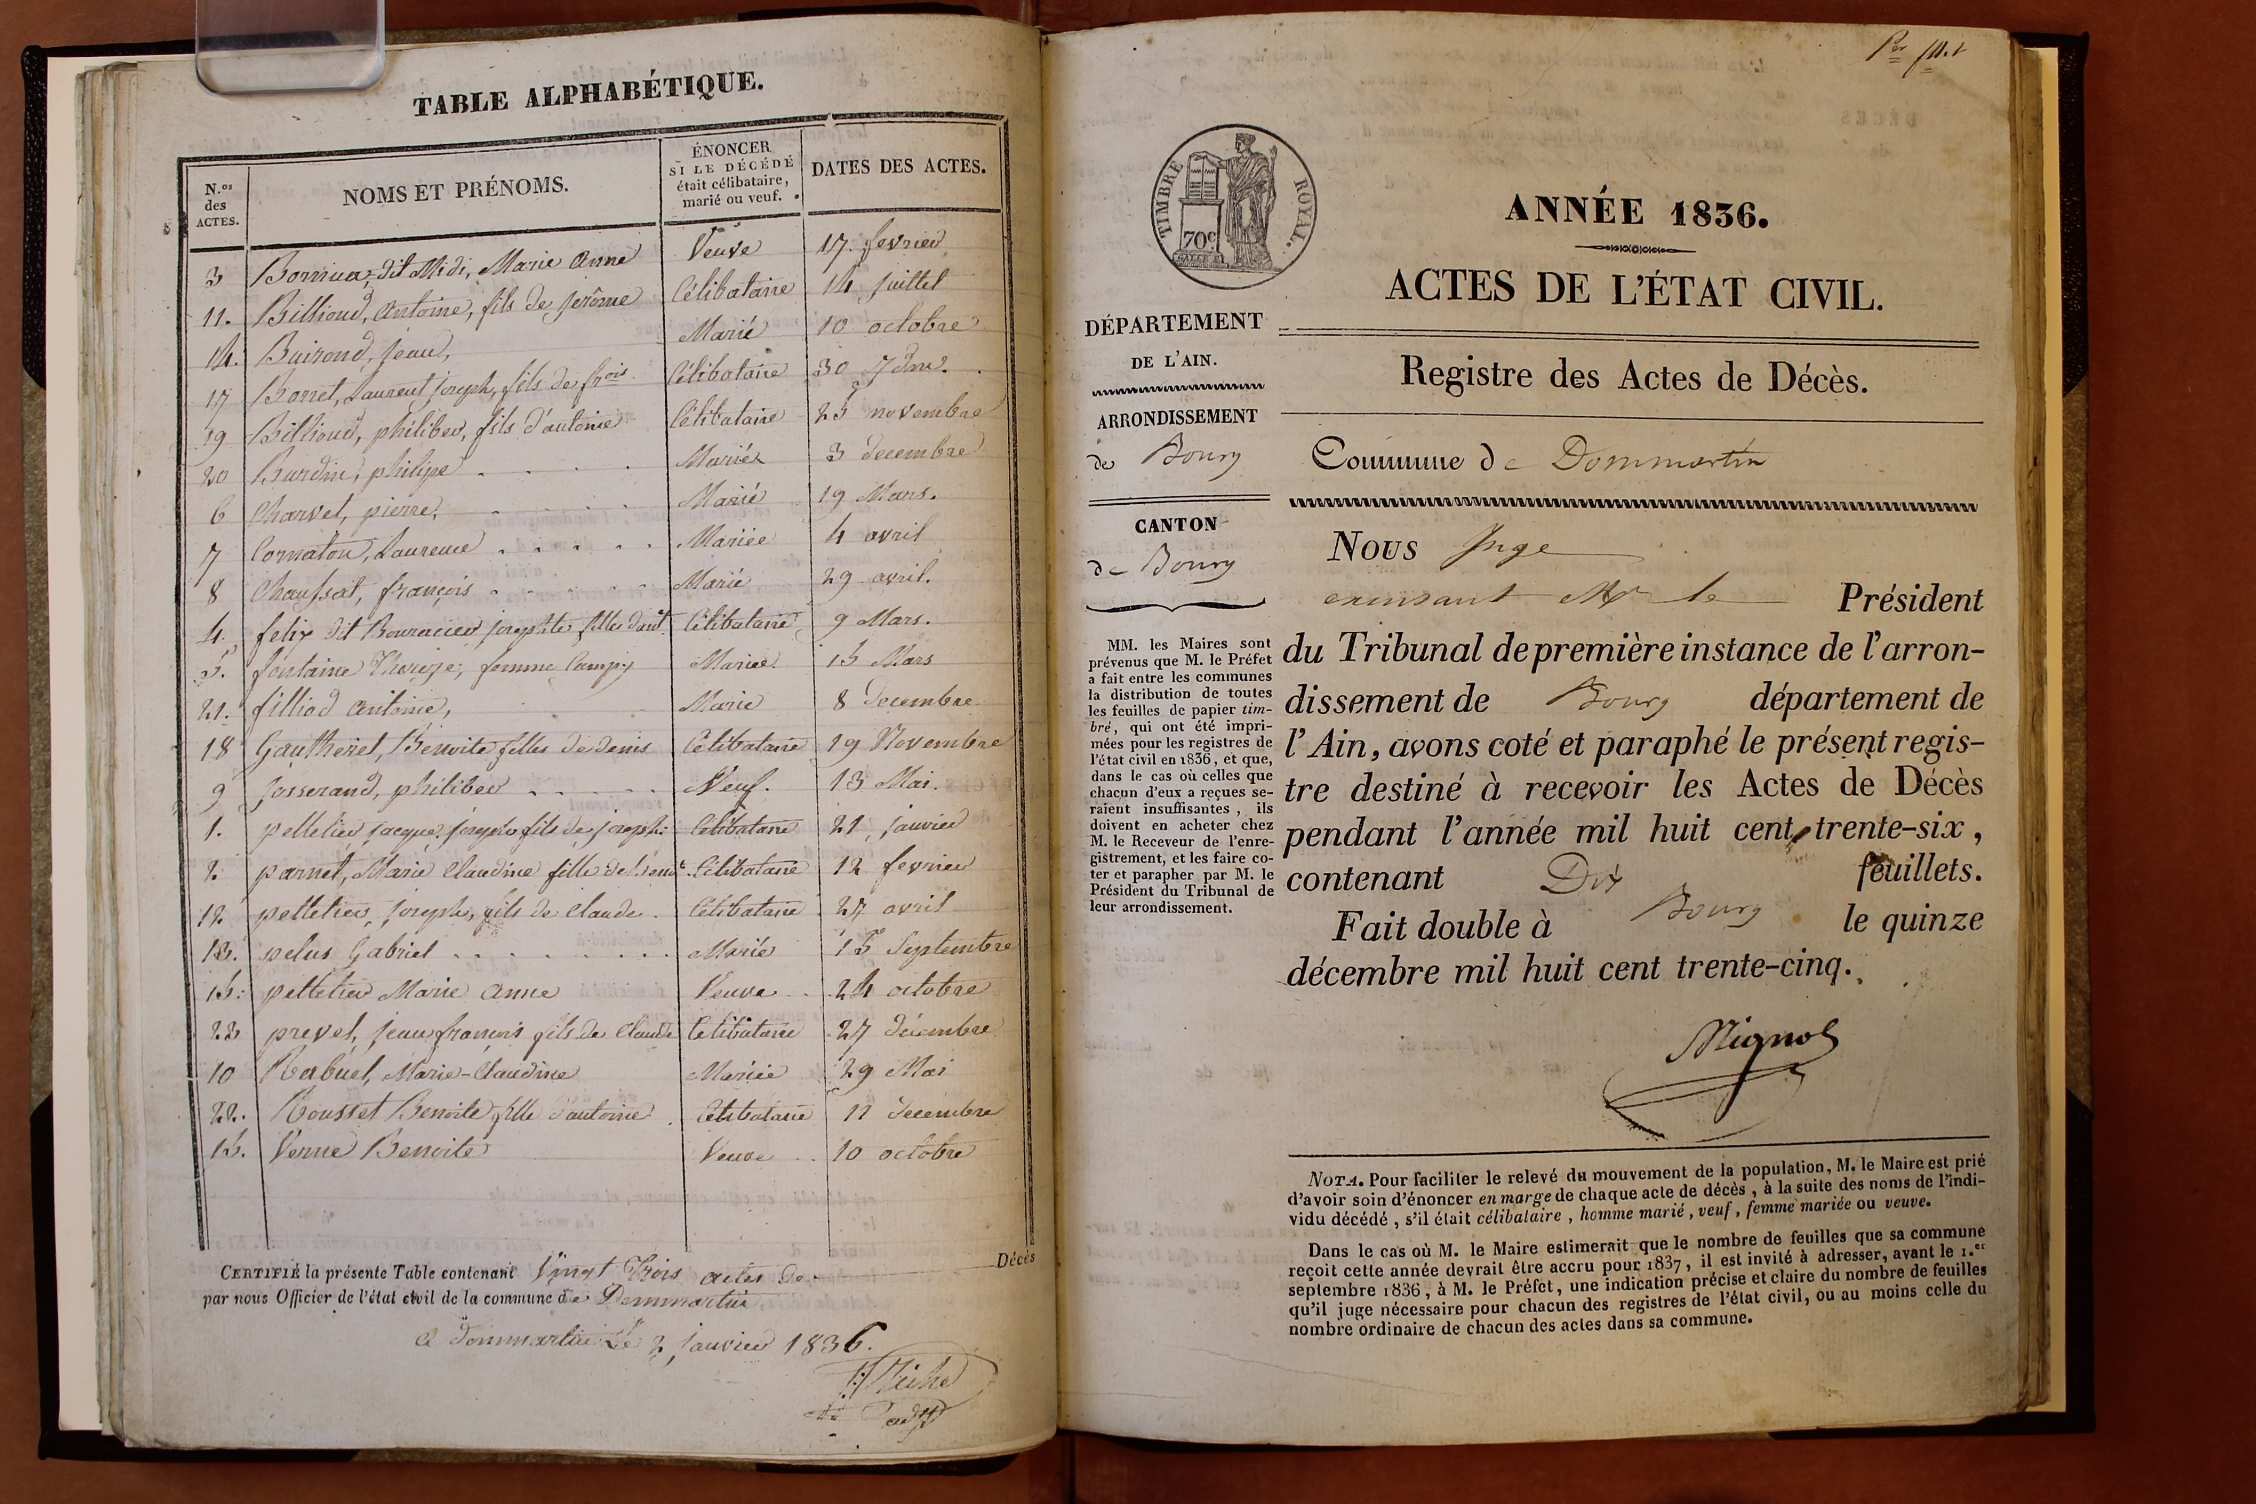 TABLE ALPHABÉTIQUE.
N.os des ACTES.
NOMS ET PRÉNOMS.
ÉNONCER SI LE DÉCÉDÉ était célibataire, marié ou veuf.
DATES DES ACTES.
3 dit Midi, Marie Anne Veuve 17 fevrier
11. Billioud, Antoine, fils de jerôme Célibataire 14 juillet
14. Buirond, jean, Marié 10 octobre
17 Borret, Laurent joseph, fils de frois Célibataire 30
19 Billioud, philiber, fils d'antoine Célibataire 25 novembre
20 Burdin, philipe Marié 3 decembre
6 Charvet, pierre, Marié 19 Mars.
7 Cornaton, Laurence Mariée 4 avril
8 Chaussat, françois Marié 29 avril.
4. felix dit josephte fille Célibataire 9 Mars.
5. fontaine Therese, femme Mariée 15 Mars
21. filliod antoine, Marié 8 decembre
18 Gautheret, Benoite filles de denis Célibataire 19 Novembre
9 Josserand, philiber Veuf. 13 Mai.
1. pelletier jacque, joseph fils de joseph: Célibataire 21 janvier
2. parnet, Marie Claudine fille de Célibataire 12 fevrier
12 pelletier, joseph, fils de Claude. Célibataire 27 avril
13. pelus Gabriel Marié 15 Septembre
15. pelletier Marie anne Veuve 24 octobre
23 prevel, jean françois fils de Claude Célibataire 27 décembre
10 Rabuel, Marie-Claudine Mariée 29 Mai
22. Rousset Benoite fille d'antoine Célibataire 11 decembre
15. Benoite Veuve 10 octobre
CERTIFIÉ la présente Table contenant Vingt Trois actes de Décès
par nous Officier de l'état civil de la commune de Dommartin
a dommartin le 2 janvier 1836.
Per fllet
TIMBRE ROYAL.
70c
ANNÉE 1836.
ACTES DE L'ÉTAT CIVIL.
Registre des Actes de Décès.
DÉPARTEMENT
DE L'AIN.
ARRONDISSEMENT
de Bourg
CANTON
de Bourg
MM. les Maires sont
prévenus que M. le Préfet
a fait entre les communes
la distribution de toutes
les feuilles de papier tim-
bré, qui ont été impri-
mées pour les registres de
l'état civil en 1836, et que,
dans le cas où celles que
chacun d'eux a reçues se-
raient insuffisantes, ils
doivent en acheter chez
M. le Receveur de l'enre-
gistrement, et les faire co-
ter et parapher par M. le
Président du Tribunal de
leur arrondissement.
Commune de Dommartin
Nous Juge
exerçant Mr le Président
du Tribunal de première instance de l'arron-
dissement de Bourg département de
l'Ain, avons coté et paraphé le présent regis-
tre destiné à recevoir les Actes de Décès
pendant l'année mil huit cent trente-six,
contenant Dix feuillets.
Fait double à Bourg le quinze
décembre mil huit cent trente-cinq.
NOTA. Pour faciliter le relevé du mouvement de la population, M. le Maire est prié
d'avoir soin d'énoncer en marge de chaque acte de décès, à la suite des noms de l'indi-
vidu décédé, s'il était célibataire, homme marié, veuf, femme mariée ou veuve.
Dans le cas où M. le Maire estimerait que le nombre de feuilles que sa commune
reçoit cette année devrait être accru pour 1837, il est invité à adresser, avant le 1.er
septembre 1836, à M. le Préfet, une indication précise et claire du nombre de feuilles
qu'il juge nécessaire pour chacun des registres de l'état civil, ou au moins celle du
nombre ordinaire de chacun des actes dans sa commune.